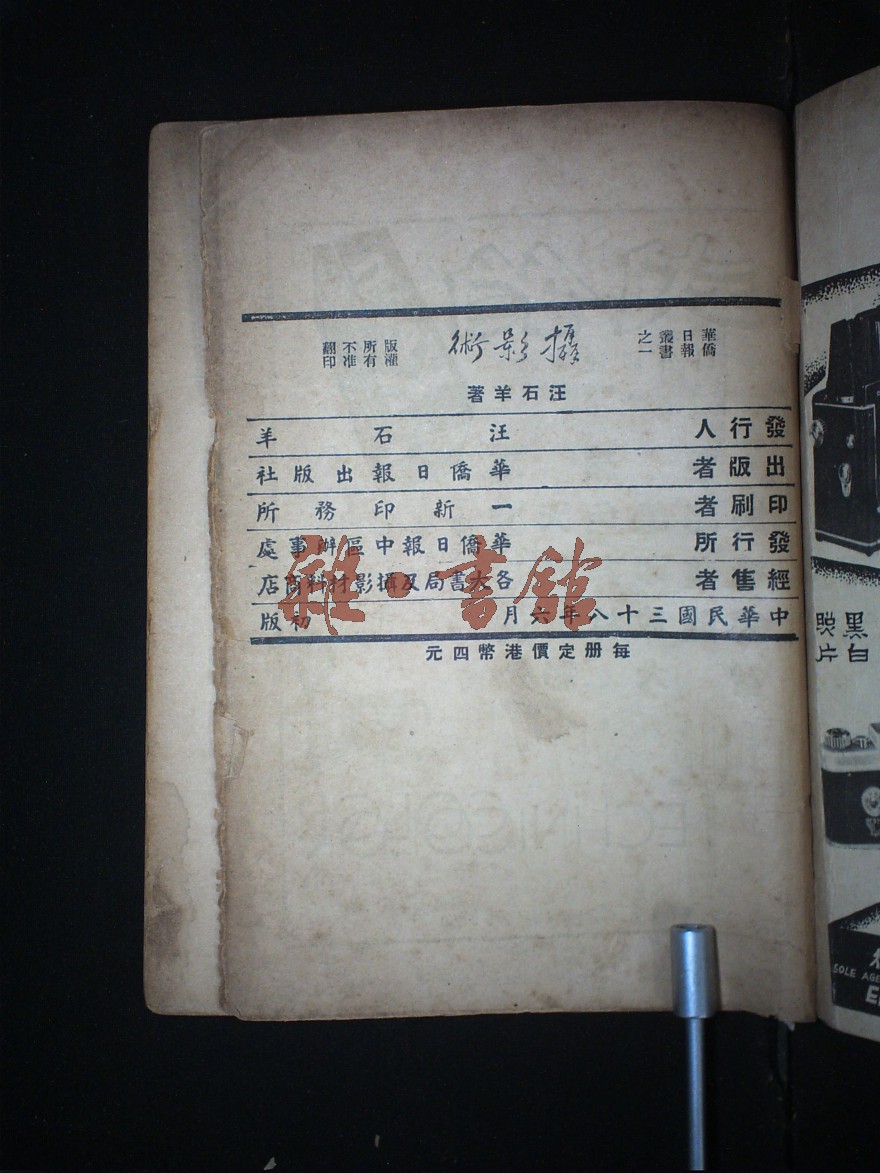 華僑日報叢書之一
攝影術
版權所有不准翻印
汪石羊著
發行人 汪石羊
出版者 華僑日報出版社
印刷者 一新印務所
發行所 華僑日報中區辦事處
經售者 各大書局及攝影材料商店
中華民國三十八年六月初版
每册定價港幣四元
雜·書館
黑白
片
SOLE